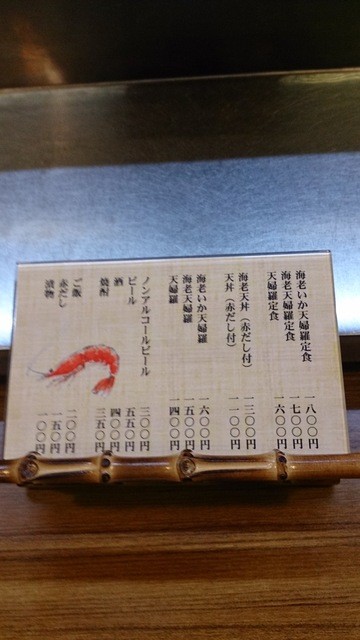 海老いか天婦羅定食 一八〇〇円
海老天婦羅定食 一七〇〇円
天婦羅定食 一六〇〇円
海老天丼（赤だし付） 一三〇〇円
天丼（赤だし付） 一一〇〇円
海老いか天婦羅 一六〇〇円
海老天婦羅 一五〇〇円
天婦羅 一四〇〇円
ノンアルコールビール 三〇〇円
ビール 五五〇円
酒 四〇〇円
焼酎 三五〇円
ご飯 二〇〇円
赤だし 一五〇円
漬物 一〇〇円